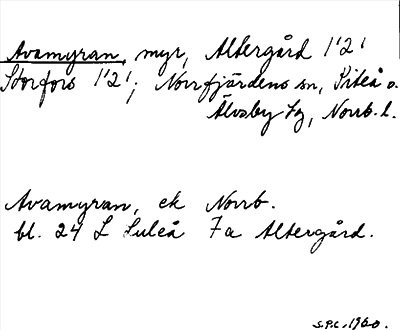 Avamyran, myr, Altergård 1'2'
Storfors 1'2'; Norrfjärdens sn, Piteå o.
Älvsby tg, Norrb. l.
Avamyran, ek Norrb.
bl. 24 L Luleå 7a Altergård.
S.P.C. 1960.